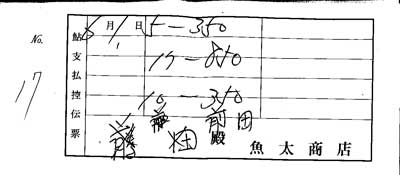 No. 17
鮎支払控伝票
8月1日
5-350
15-850
10-350
藤畑 前田
殿
魚太商店